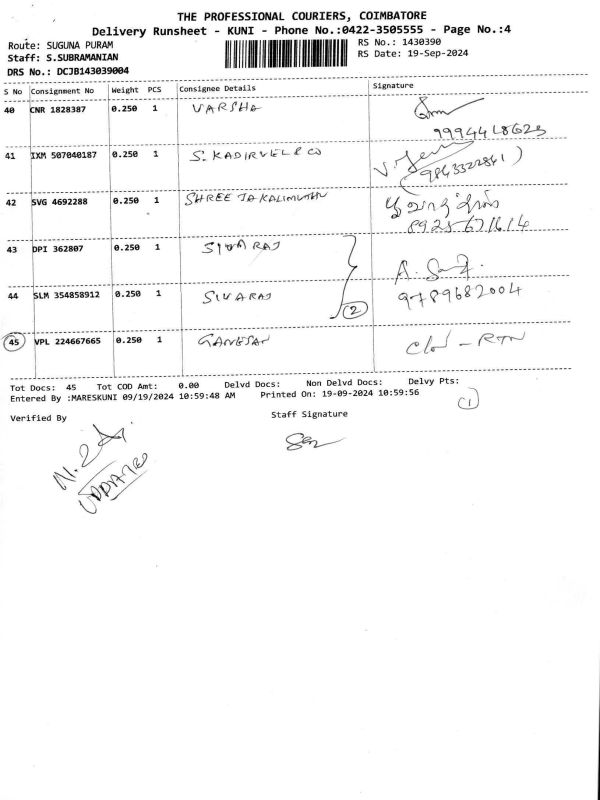 THE PROFESSIONAL COURIERS, COIMBATORE
Delivery Runsheet - KUNI - Phone No.:0422-3505555 - Page No.:4
Route: SUGUNA PURAM
RS No.: 1430390
Staff: S.SUBRAMANIAN
RS Date: 19-Sep-2024
DRS No.: DCJB143039004
S No Consignment No Weight PCS Consignee Details Signature
40 CNR 1828387 0.250 1 VARSHA
9994418623
41 IXM 507040187 0.250 1 S. KADIRVEL & CO
9843322841)
42 SVG 4692288 0.250 1 SHREE JAKALIMUTHU
8925671614
43 DPI 362807 0.250 1 SIVARAJ
44 SLM 354858912 0.250 1 SIVARAJ
9789682004
2
45 VPL 224667665 0.250 1 GANESAN
- RTN
Tot Docs: 45 Tot COD Amt: 0.00 Delvd Docs: Non Delvd Docs: Delvy Pts:
Entered By :MARESKUNI 09/19/2024 10:59:48 AM Printed On: 19-09-2024 10:59:56
1
Verified By
Staff Signature
UPDATED